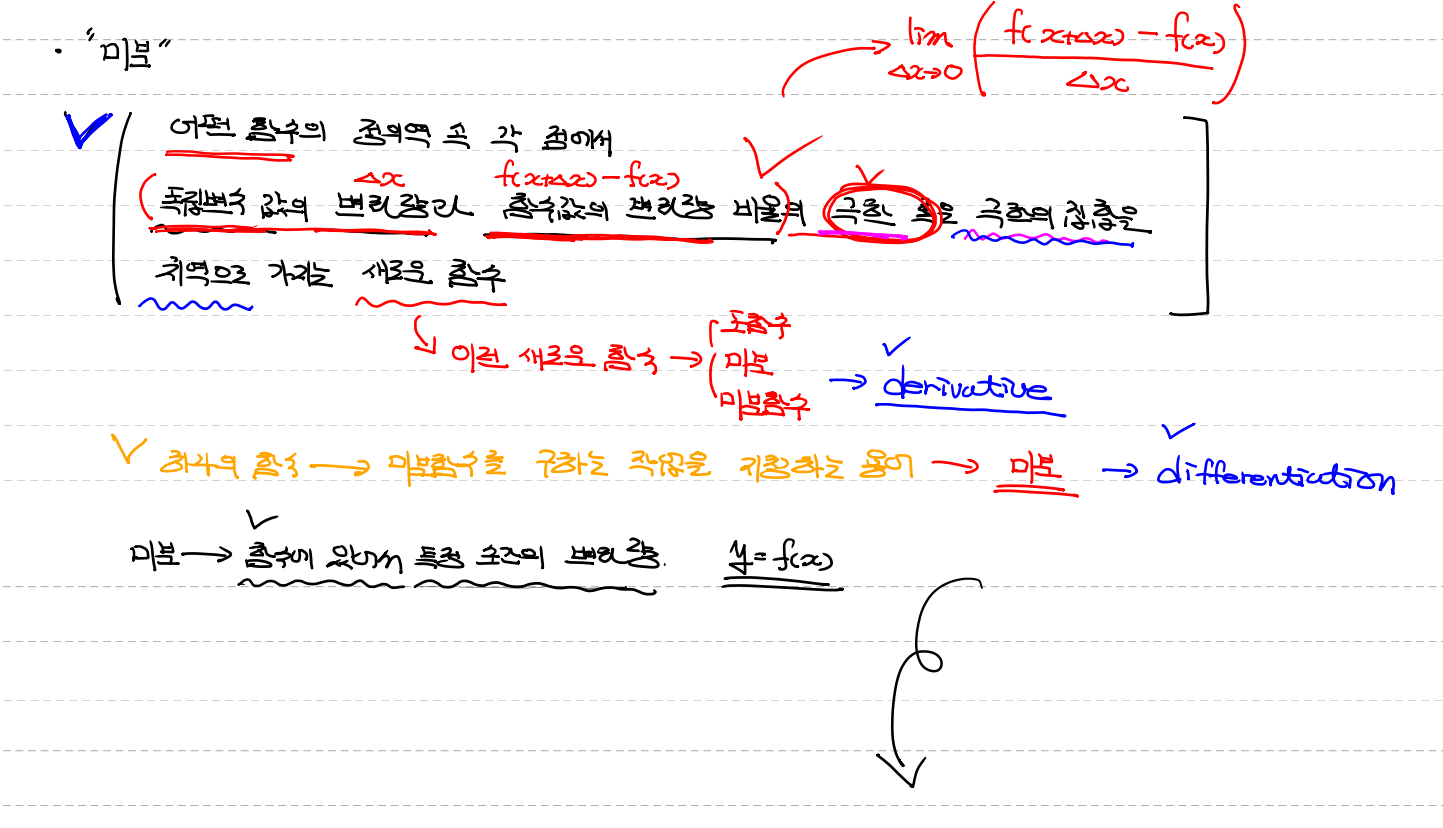 · "미분"
lim Δx→0 ( f(x+Δx) − f(x) / Δx )
어떤 함수의 정의역 속 각 점에서
Δx f(x+Δx) − f(x)
독립변수 값의 변화량과 함숫값의 변화량 비율의 극한 혹은 극한의 집합을
치역으로 가지는 새로운 함수
이런 새로운 함수 → 도함수
미분
미분함수
→ derivative
하나의 함수 → 미분함수를 구하는 작업을 지칭하는 용어 → 미분 → differentiation
미분 → 함수에 있어서 특정 순간의 변화량. y = f(x)